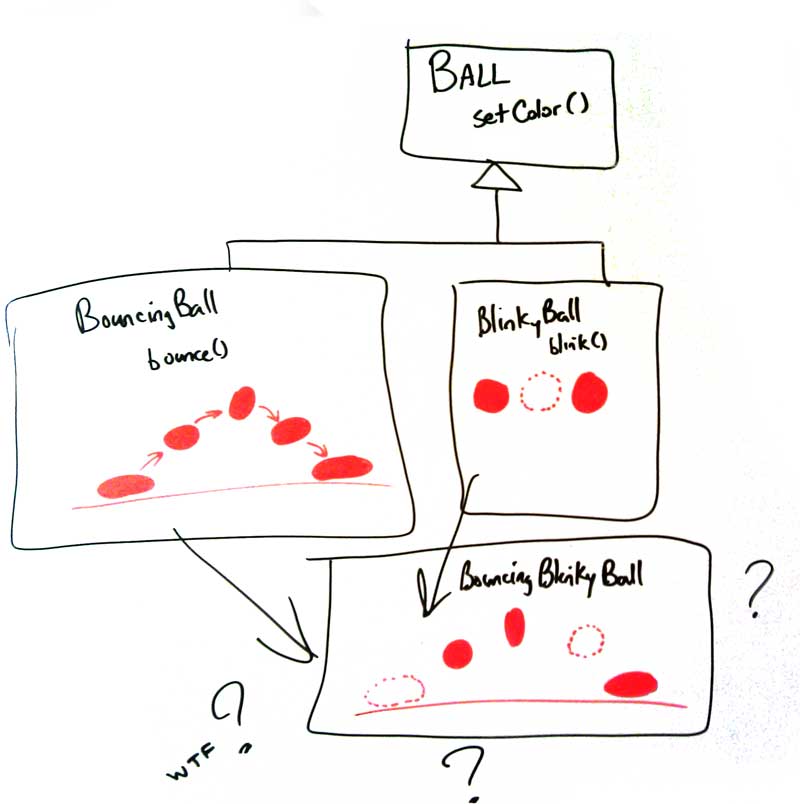 BALL
setColor()
BouncingBall
bounce()
BlinkyBall
blink()
BouncingBlinkyBall
?
?
WTF
?